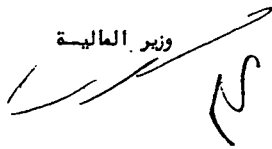 وزير المالية